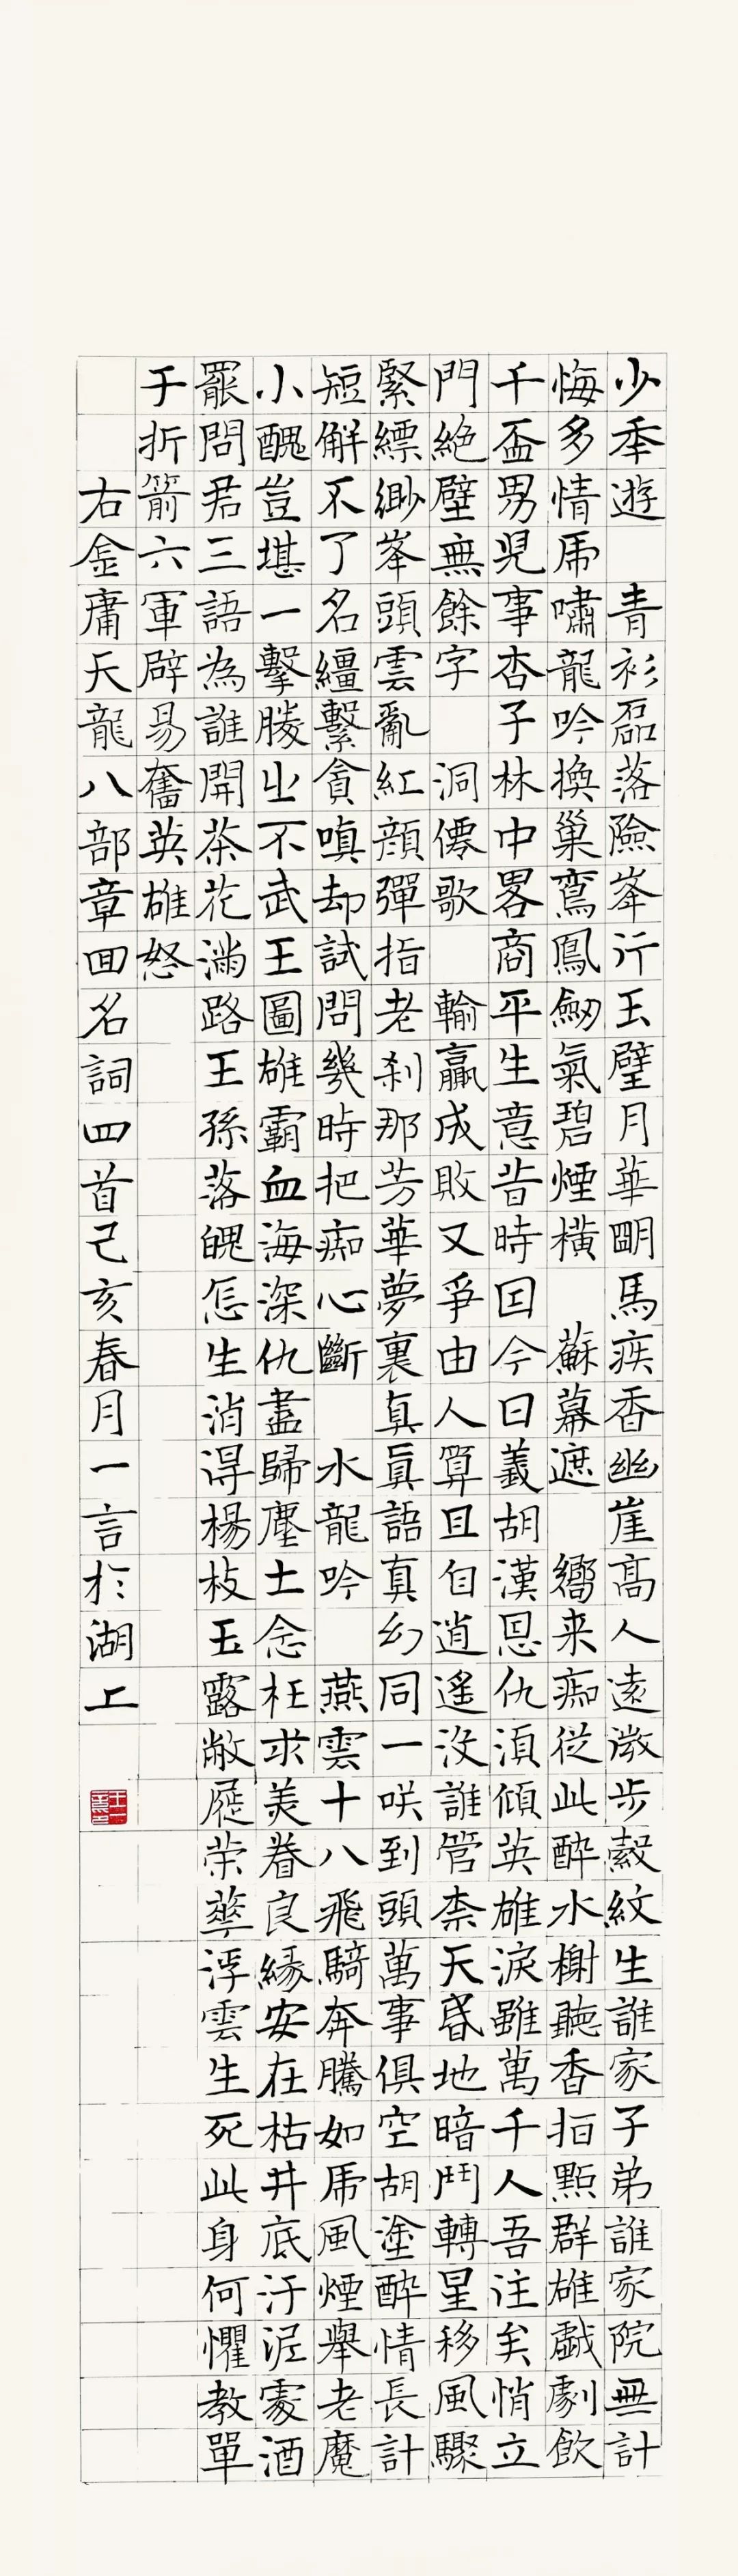 少秊遊 青衫磊落險峯行玉璧月華朙馬疾香幽崖高人遠微步縠紋生誰家子弟誰家院無計
悔多情虎嘯龍吟換巢鸞鳳劒氣碧煙橫 蘇幕遮 嚮来痴從此醉水榭聽香指點群雄戲劇飲
千盃男兒事杏子林中畧商平生意昔時因今日義胡漢恩仇須傾英雄淚雖萬千人吾注矣悄立
門絶壁無餘字 洞僊歌 輸贏成敗又爭由人算且自逍遙沒誰管柰天昏地暗鬥轉星移風驟
緊縹緲峯頭雲亂紅顔彈指老刹那芳華夢裏真真語真幻同一咲到頭萬事俱空胡塗醉情長計
短解不了名韁繫貪嗔却試問幾時把痴心斷 水龍吟 燕雲十八飛騎奔騰如虎風煙舉老魔
小醜豈堪一擊勝之不武王圖雄霸血海深仇盡歸塵土念枉求美眷良緣安在枯井底汙泥處酒
罷問君三語為誰開茶花滿路王孫落魄怎生消得楊枝玉露敝屣荣華浮雲生死此身何懼教單
于折箭六軍辟易奮英雄怒
右金庸天龍八部章回名詞四首己亥春月一言於湖上